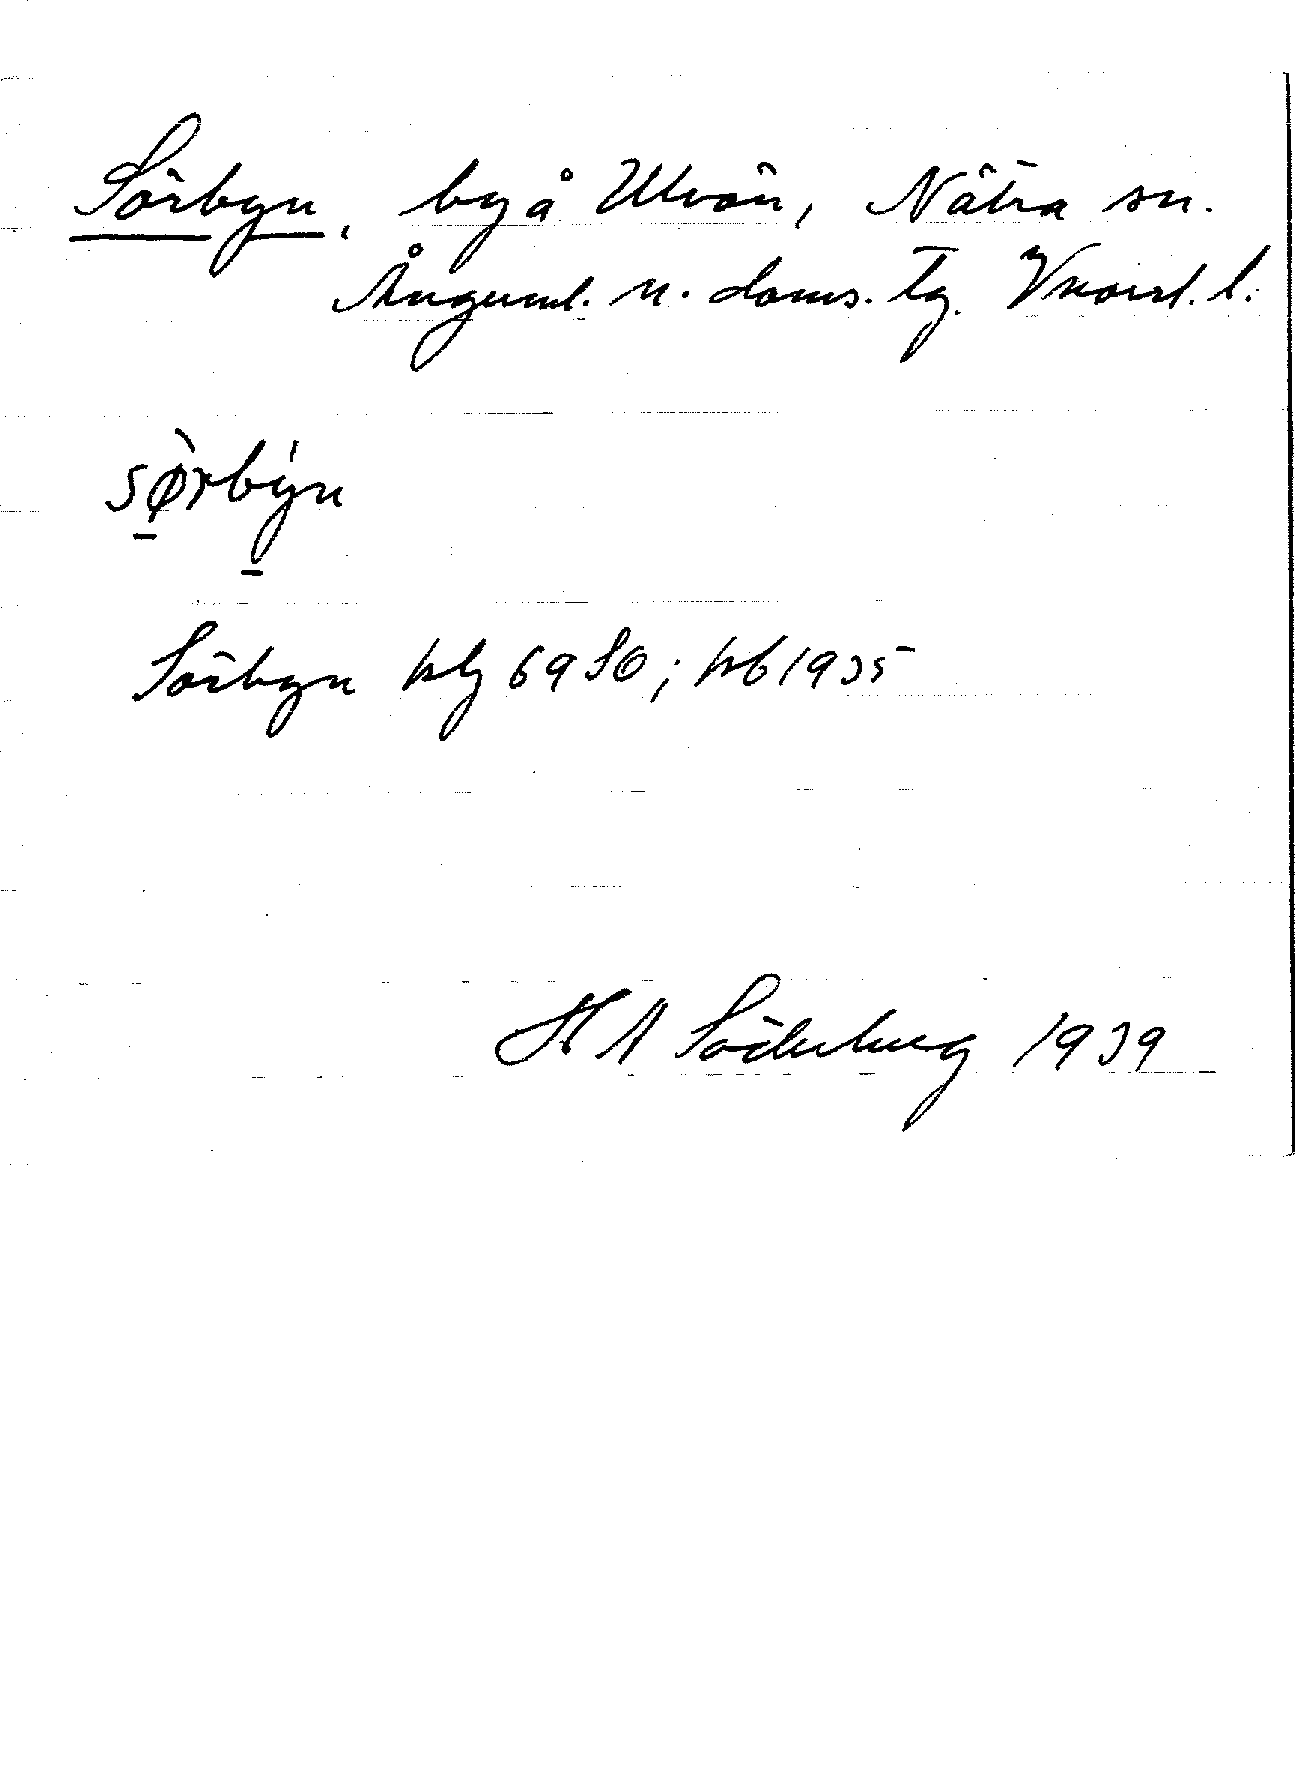 Sörbyn, by å Ulvön, Nätra sn.
Ångerml. n. doms. tg. Vnorrl. l.
sø̀rbýn
Sörbyn blz 69 SO; hb 1935
H A Söderberg 1939